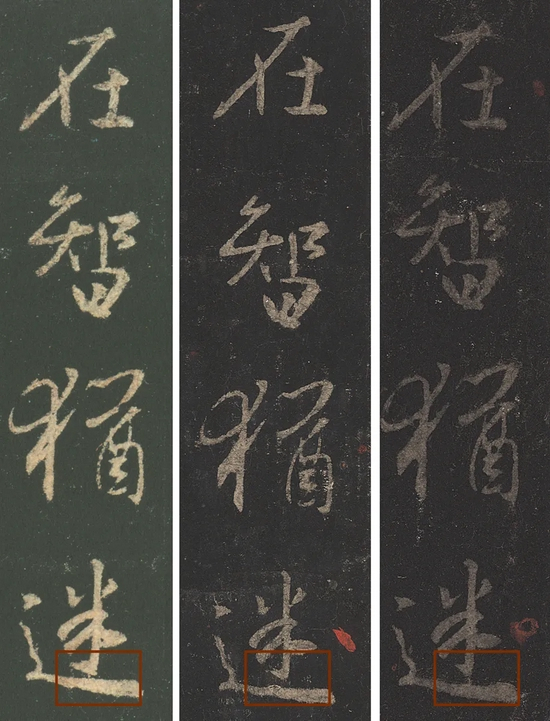 在智猶迷
在智猶迷
在智猶迷